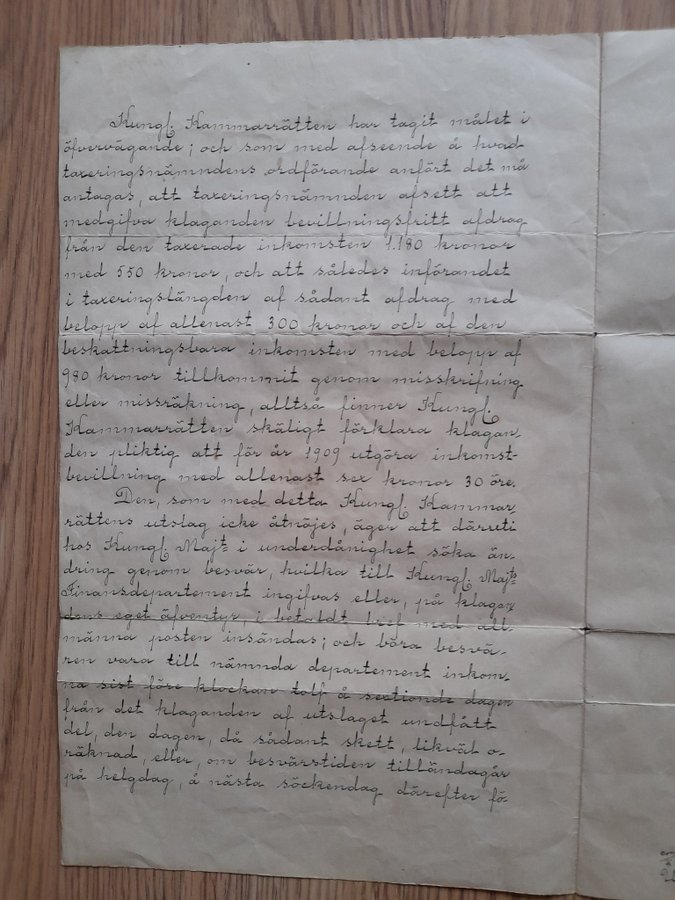 Kungl. Kammarrätten har tagit målet i
öfvervägande; och som med afseende å hvad
taxeringsnämndens ordförande anfört det må
antagas, att taxeringsnämnden afsett att
medgifva klaganden bevillningsfritt afdrag
från den taxerade inkomsten 1.180 kronor
med 550 kronor, och att således införandet
i taxeringslängden af sådant afdrag med
belopp af allenast 300 kronor och af den
beskattningsbara inkomsten med belopp af
980 kronor tillkommit genom misskrifning
eller missräkning, alltså finner Kungl.
Kammarrätten skäligt förklara klagan,
den pliktig att för år 1909 utgöra inkomst-
bevillning med allenast sex kronor 30 öre.
Den, som med detta Kungl. Kammar,
rättens utslag icke åtnöjes, äger att däruti
hos Kungl. Majts i underdånighet söka än-
dring genom besvär, hvilka till Kungl. Majts
Finansdepartement ingifvas eller, på klagan,
dens eget äfventyr, i betaldt bref med all-
männa posten insändas; och böra besvä-
ren vara till nämnda departement inkom-
na sist före klockan tolf å sextionde dagen
från det klaganden af utslaget undfått
del, den dagen, då sådant skett, likväl o-
räknad, eller, om besvärstiden tilländagår
på helgdag, å nästa söckendag därefter fö-